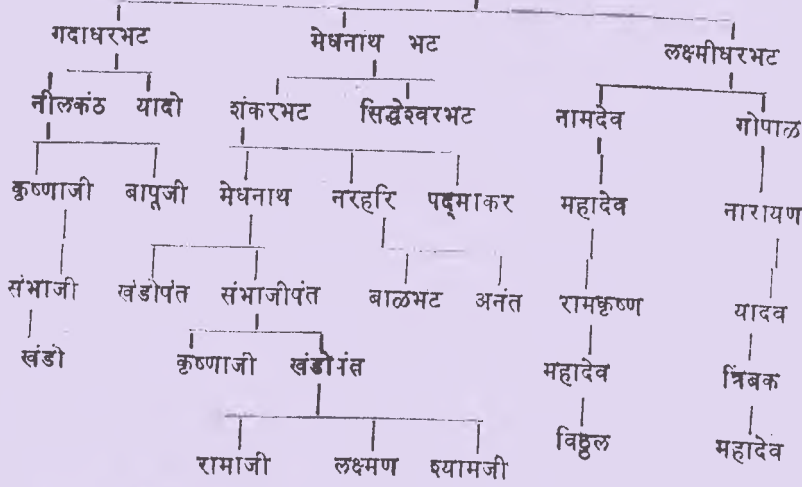 गदाधरभट मेधनाथ भट लक्ष्मीधरभट
नीलकंठ यादो शंकरभट सिद्धेश्वरभट नामदेव गोपाळ
कृष्णाजी बापूजी मेधनाथ नरहरि पद्माकर महादेव नारायण
संभाजी खंडोपंत संभाजीपंत बाळभट अनंत रामकृष्ण यादव
खंडो कृष्णाजी खंडोपंत महादेव त्रिंबक
रामाजी लक्ष्मण श्यामजी विठ्ठल महादेव